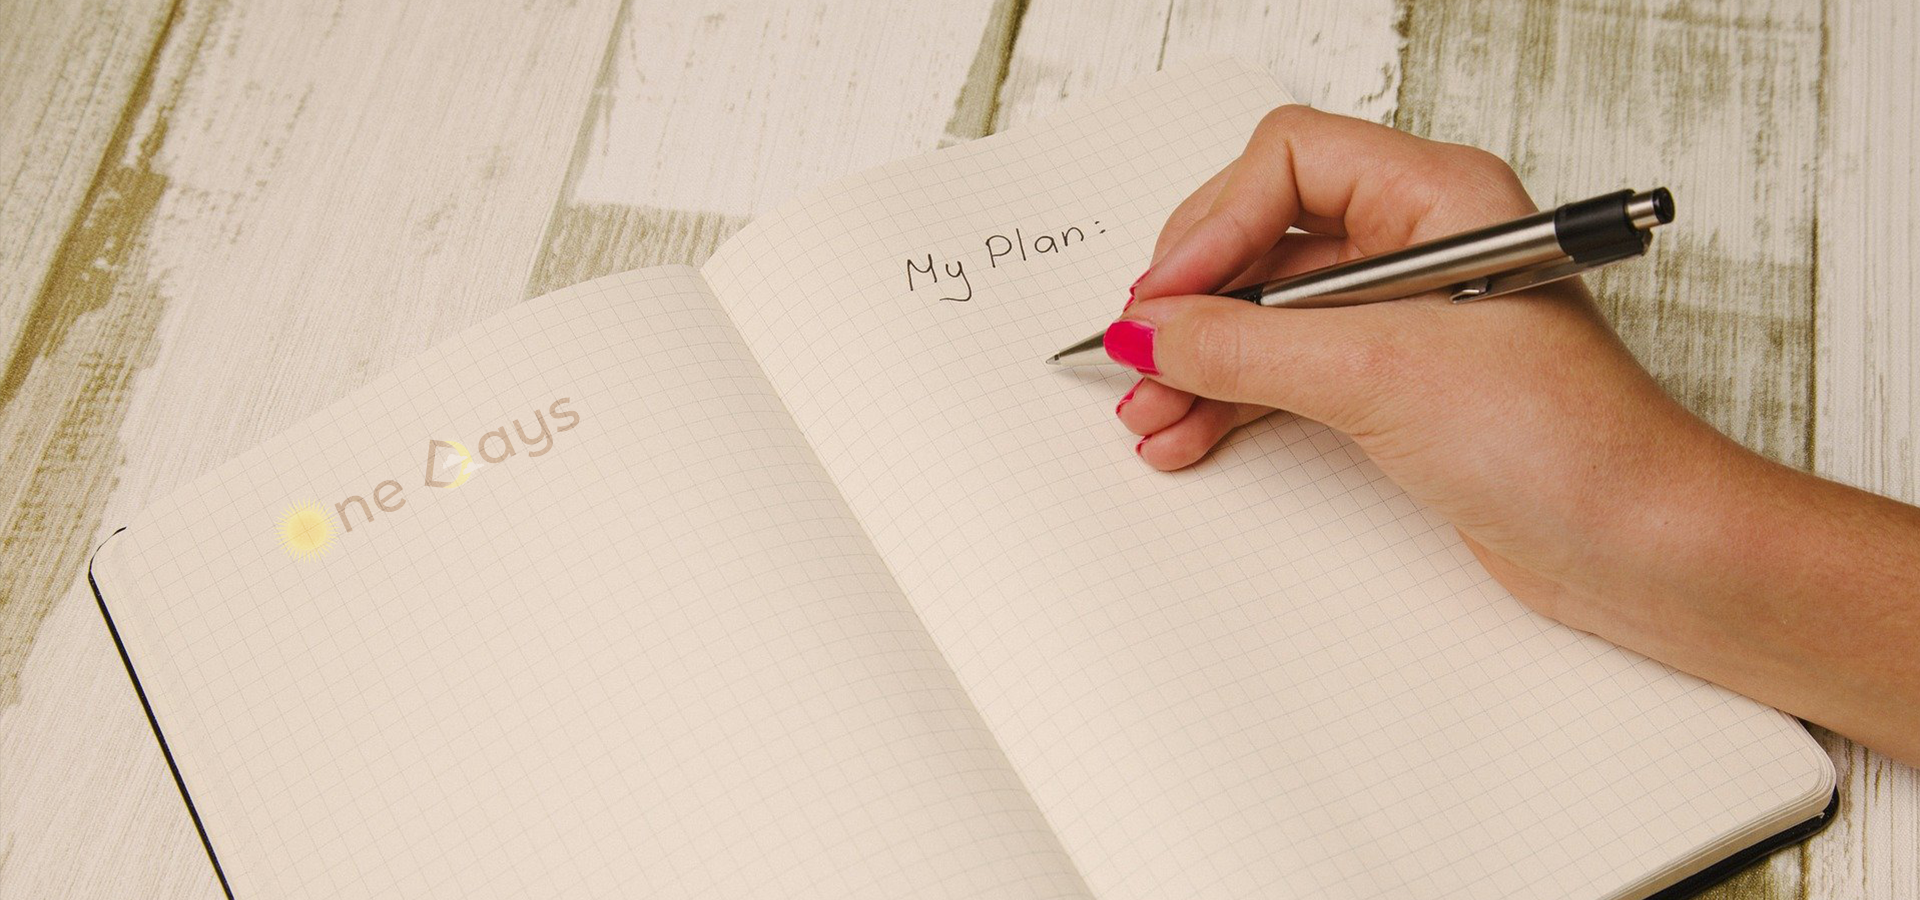 One Days
My Plan: